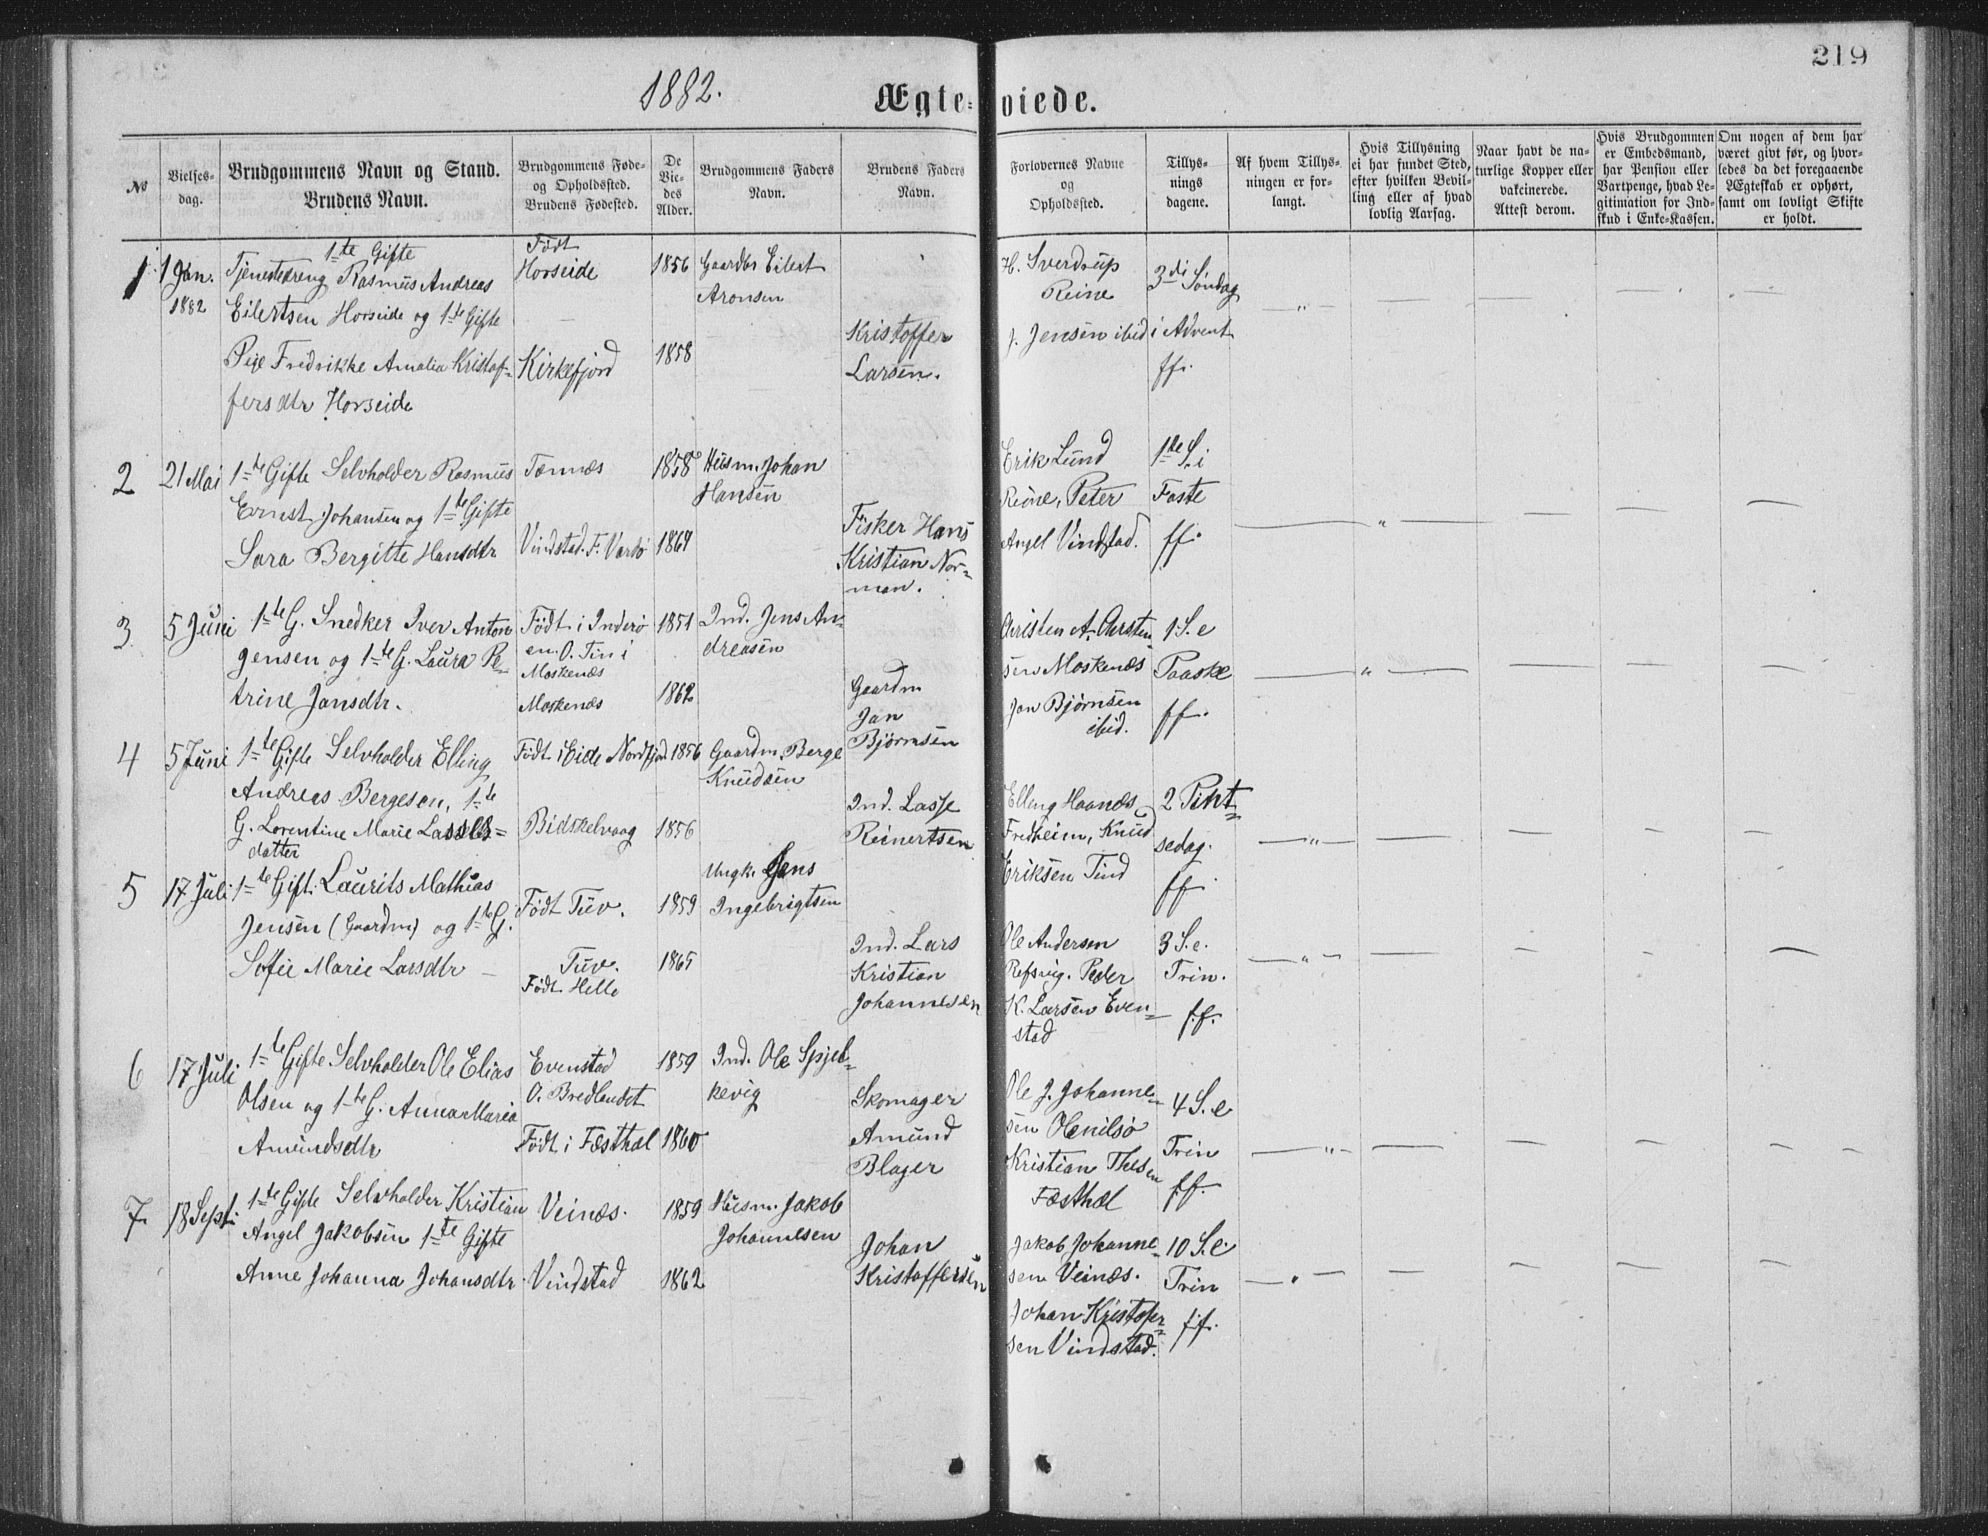 219
1882.
Ægteviede.
No
Vielses-
dag.
Brudgommens Navn og Stand.
Brudens Navn.
Brudgommens Føde-
og Opholdssted.
Brudens Fødested.
De
Vie-
des
Alder.
Brudgommens Faders
Navn.
Brudens Faders
Navn.
Forlovernes Navne
og
Opholdssted.
Tillys-
nings
dagene.
Af hvem Tillys-
ningen er for-
langt.
Hvis Tillysning
ei har fundet Sted,
efter hvilken Bevil-
ling eller af hvad
lovlig Aarsag.
Naar havt de na-
turlige Kopper eller
vakcinerede.
Attest derom.
Hvis Brudgommen
er Embedsmand,
har Pension eller
Vartpenge, hvad Le-
gitimation for Ind-
skud i Enke-Kassen.
Om nogen af dem har
været givt før, og hvor-
ledes da det foregaaende
Ægteskab er ophørt,
samt om lovligt Skifte
er holdt.
1
1 Jan.
1882
1te Gifte
Tjenestedreng Rasmus Andreas
Eilertsen Horseide og 1te Gifte
Pige Fredrikke Amalia Kristof-
fersdtr Horseide
Født
Horseide
Kirkefjord
1856
1858
Gaardbr Eilert
Aronsen
Kristoffer
Larsen.
H. Sverdrup
Reine
J. Jensen ibid
3di Søndag
i Advent
ff.
2
21 Mai
1te Gifte Selvholder Rasmus
Ernst Johansen og 1te Gifte
Sara Bergitte Hansdtr
Tennæs
Vindstad. F. Vardø
1858
1864
Husm. Johan
Hansen
Fisker Hans
Kristian Nor-
man.
Erik Lund
Reine, Peter
Angel Vindstad.
1te S. i
Faste
ff.
3
5 Juni
1te G. Snedker Iver Anton
Jensen og 1te G. Laura Pe-
trine Jansdtr.
Født i Inderø
en. O. Tin i
Moskenæs
Moskenæs
1851
1862
Ind. Jens An-
dreasen
Gaardm
Jan
Bjørnsen
Christen A. Chrsten
sen Moskenæs
Jan Bjørnsen
ibid.
1 S. e
Paaske
ff.
4
5 Juni
1te Gifte Selvholder Elling
Andreas Bergesen, 1te
G. Lorentine Marie Lasses-
datter
Født i Eide Nordfjord
Bidskelvaag
1856
1856
Gaardm. Berge
Knudsen
Ind. Lasse
Reinertsen
Elling Haanæs
Fredheim, Knud
Eriksen Tind
2 Pint
sedag.
ff
5
17 Juli
1te Gift. Laurits Mathias
Jensen (Gaardm) og 1te G.
Sofie Marie Larsdtr
Født Tuv.
Tuv.
Født Helle
1859
1865
Ungk. Jens
Ingebrigtsen
Ind. Lars
Kristian
Johannesen
Ole Andersen
Refsvig. Peder
K. Larsen Even-
stad
3 S. e.
Trin.
f.f.
6
17 Juli
1te Gifte Selvholder Ole Elias
Olsen og 1te G. Anna Maria
Amundsdtr
Evenstad
O. Bredlandet
Født i Fæsthæl
1859
1860
Ind. Ole Spjel-
kevig
Skomager
Amund
Blager
Ole J. Johanne-
sen Olenilsø
Kristian Thesen
Fæsthæl
4 S. e
Trin
ff.
7
18 Sept.
1te Gifte Selvholder Kristian
Angel Jakobsen 1te Gifte
Anne Johanna Johansdtr
Veinæs.
Vindstad
1859
1862
Husm. Jakob
Johannesen
Johan
Kristoffersen
Jakob Johanne-
sen Veinæs.
Johan Kristofer-
sen Vindstad.
10 S. e.
Trin
f.f.